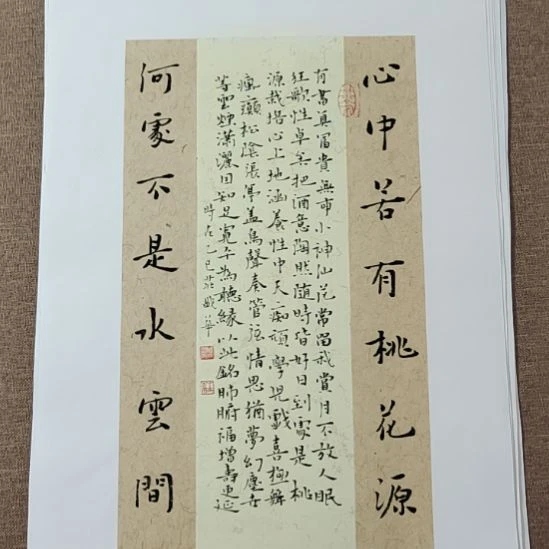 心中若有桃花源
有書真富貴無事小神仙花常留我賞月不放人眠
狂歌性卓矣把酒意陶然随時皆好日到處是桃
源栽培心上地涵養性中天痴頑學兒戲喜極舞
瘋顛松陰張傘盖鳥聲奏管弦情思猶夢幻塵世
等雲煙瀟灑因知足寬平為聽緣以此銘肺腑福增壽更延
時在乙巳莊
何處不是水雲間